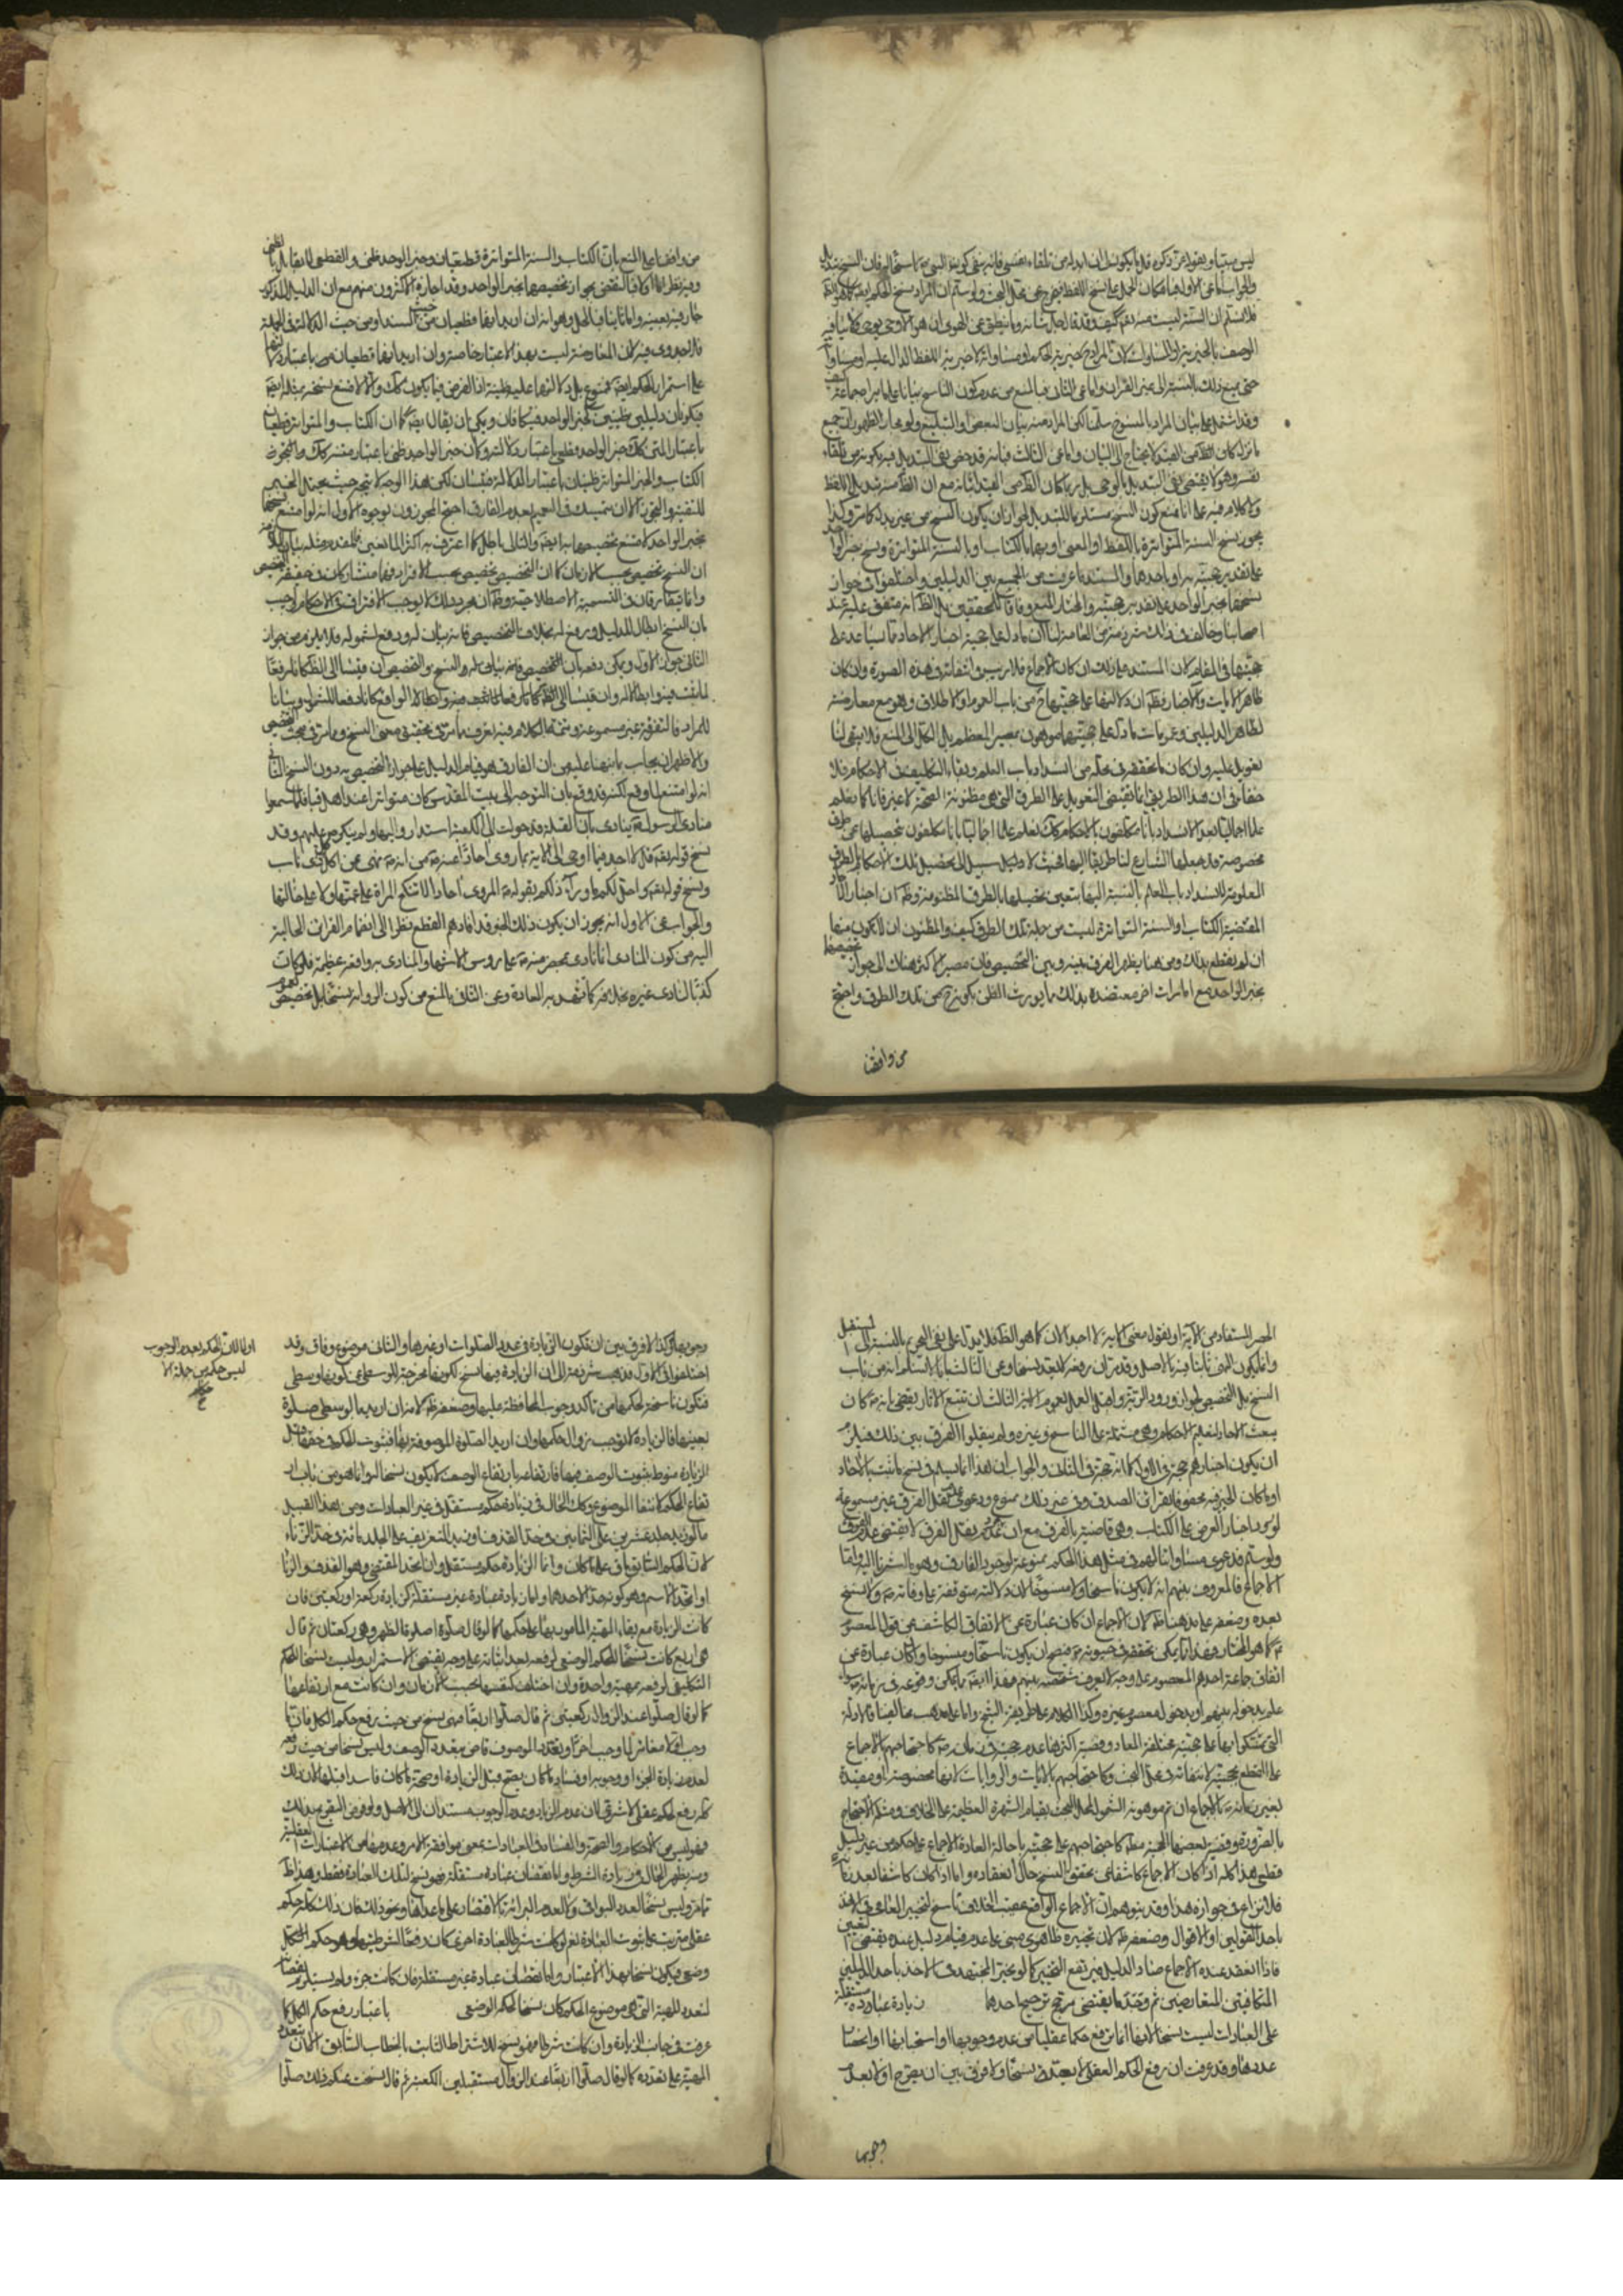 ليس مبينا وبقوله عز ذكره قل ما يكون لي ان ابدله من تلقاء نفسي فانه ينفي كونه
والجواب اما عن الاول فبامكان الحمل على نسخ اللفظ فيخرج عن محل البحث ولو سلم ان المراد نسخ الحكم
فلا نسلم ان السنة ليست منه تعالى كيف وقد قال جل شانه وما ينطق عن الهوى ان هو الا وحي يوحى
الوصف بالخيرية او المساوات لان المراد خيرية الحكم او مساواته لا خيرية اللفظ الدال عليه او مساواته
حتى يمنع ذلك بالنسبة الى غير القران واما عن الثاني فبالمنع من عدم كون الناسخ بيانا
وقد اشتمل على بيان المراد بالمنسوخ سلمنا لكن المراد منه بيان البعض او التبليغ ولو مجازا لظهور ان جميع
ما نزل كان الظ من العبد لا يحتاج الى البيان واما عن الثالث فبانه قد خص نفي التبديل فيه بكونه من تلقاء
نفسه وهو لا يقتضي نفي التبديل بالوحي بل ربما كان الظ من القيد اثباته مع ان الظ منه تبديل اللفظ
ولا كلام فيه على انا نمنع كون النسخ مستلزما للتبديل لجواز ان يكون النسخ من غير بدل كما مر وكذا
يجوز نسخ السنة المتواترة باللفظ او المعنى او بهما بالكتاب او بالسنة المتواترة ونسخ خبر الواحد
على تقدير حجيته بها وباحدها والمستند ما عرفت من الجمع بين الدليلين واختلفوا في جواز
نسخهما بخبر الواحد على تقدير حجيته والمختار المنع وفاقا للمحققين بل الظ انه متفق عليه عند
اصحابنا وخالف في ذلك شرذمة من العامة لنا ان ما دل على حجية اخبار الاحاد لا يساعد على
حجيتها في المقام لان المستند على ذلك ان كان الاجماع فلا ريب في انتفائه في هذه الصورة وان كان
ظاهر الايات والاخبار فظ ان دلالتها على حجيتها ح من باب العموم او الاطلاق وهو مع معارضته
لظاهر الدليلين وعمومات ما دل على حجيتهما موهون بمصير المعظم بل الكل الى المنع فلا يبقى لنا
تعويل عليه وان كان ما نحققه في محله من انسداد باب العلم وبقاء التكليف في الاحكام فلا
خفاء في ان هذا الطريق انما يقتضي التعويل على الطرق التي هي مظنونة الحجية لا غير فانا كما نعلم
علما اجماليا بعد الانسداد بانا مكلفون بالاحكام كك نعلم علما اجماليا بانا مكلفون بتحصيلها عن طرق
مخصوصة قد جعلها الشارع لنا طريقا اليها فحيث لا دليل سبيل الى تحصيل تلك الاحكام بالطرق
المعلومة لانسداد باب العلم بالنسبة اليها يتعين تحصيلها بالطرق المظنونة وظ ان اخبار الاحاد
المقتضية الكتاب او السنة المتواترة ليست من جملة تلك الطرق كيف والمظنون ان لا يكون منها
ان لم يقطع بذلك ومن هنا يظهر الفرق بينه وبين التخصيص فان مصير الاكثر هناك الى جواز تخصيصها
بخبر الواحد مع امارات اخر معتضدة بذلك مما يورث الظن بكونه ح من تلك الطرق واحتج
من وافقنا
من وافقنا على المنع بان الكتاب والسنة المتواترة قطعيان وخبر الواحد ظني والقطعي لا يقابل بالظني
وفيه نظر اما اولا فبالنقض بجواز تخصيصهما بخبر الواحد وقد اجازه الاكثرون منهم مع ان الدليل المذكور
جار فيه بعينه واما ثانيا فبالحل وهو انه ان اريد انهما قطعيان من حيث السند او من حيث الدلالة في الجملة
فلا جدوى فيه لان المعارضة ليست بهذا الاعتبار خاصة وان اريد انهما قطعيان من باعتبار دلالتهما
على استمرار الحكم ايضا فممنوع بل دلالتهما عليه ظنية اذ الفرض فيما يكون كك والا لامتنع نسخه بمثله ايضا
فيكونان دليلين ظنيين كخبر الواحد فيتكافان ويمكن ان يقال ايضا كما ان الكتاب والمتواتر قطعيان
باعتبار المتن كك خبر الواحد قطعي باعتبار دلالته وكما ان خبر الواحد ظني باعتبار سنده كك
الكتاب والخبر المتواتر ظنيان باعتبار الدلالة فيتساويان لكن هذا الوجه لا يتم حيث يحتمل الخبر
للتقية والتجوز الا ان يتمسك في التعميم بعدم الفارق احتج المجوزون بوجوه الاول انه لو امتنع نسخها
بخبر الواحد لامتنع تخصيصها به ايضا والتالي باطل كما اعترف به اكثر المانعين فالمقدم مثله بيان الملازمة
ان النسخ تخصيص بحسب الازمان كما ان التخصيص تخصيص بحسب الافراد فهما متشاركان في حقيقة التخصيص
وانما يتفارقان في التسمية الاصطلاحية وظ ان مجرد ذلك لا يوجب الافتراق في الاحكام واجيب
بان النسخ ابطال للدليل ورفع له بخلاف التخصيص فانه بيان له ودفع لشموله فلا يلزم من جواز
الثاني جواز الاول ويمكن دفعه بان التخصيص
لما ثبت
للمراد فالتفرقة غير مسموعة وتتمة الكلام فيه تعرف مما مر في تحقيق معنى النسخ ومما مر في بحث التخصيص
والاظهر ان يجاب بما نبهنا عليه من ان الفارق هو قيام الدليل على جواز التخصيص به دون النسخ الثاني
انه لو امتنع لما وقع لكنه قد وقع فان التوجه الى بيت المقدس كان متواترا عند اهل قبا فلما سمعوا
منادي الرسول ص ينادي بان القبلة قد حولت الى الكعبة استداروا اليها ولم ينكر ص عليهم وقد
نسخ قوله تعالى قل لا اجد فيما اوحي الي الاية بما روي احادا عنه ص من انه ص نهى عن اكل كل ذي ناب
ونسخ قوله تعالى واحل لكم ما وراء ذلكم بقوله ص المروي احادا لا تنكح المراة على عمتها ولا على خالتها
والجواب عن الاول انه يجوز ان يكون ذلك الخبر قد افادهم القطع نظرا الى انضمام القرائن الحالية
اليه من كون المنادي انما نادى بمحضر منه ص على رؤس الاشهاد والمنادى به واقعة عظيمة فلو كان
كذبا لنادى غيره بخلافه كما تشهد به العادة وعن الثاني بالمنع من كون الرواية نسخا بل تخصيص
الحصر المستفاد من الاية او نقول معنى الاية لا اجد الان كما هو الظ فلا يدل على نفي التحريم بالنسبة الى المستقبل
وانما يكون النفي ثابتا فيه بالاصل وقد مر ان رفعه لا يعد نسخا وعن الثالث بانا لا نسلم انه من باب
النسخ بل التخصيص لجواز ورود الرواية قبل العمل بعموم الخبر الثالث ان تتبع الاثار يقضي بانه ص كان
يبعث الاحاد لتعليم الاحكام وهي مشتملة على الناسخ وغيره ولم ينقلوا الفرق بين ذلك فيلزم
ان يكون اخبارهم حجة في الاول كما انه حجة في الثاني والجواب ان هذا انما يسلم في نسخ ما ثبت بالاحاد
او ما كان الخبر فيه محفوفا بقرائن الصدق وفي غير ذلك ممنوع ودعوى عدم نقل الفرق غير مسموعة
لورود اخبار العرض على الكتاب وهي قاضية بالفرق مع ان عدم نقل الفرق لا يقتضي عدم الفرق
ولو سلم فدعوى مساواتنا لهم في مثل هذا الحكم ممنوعة لوجود الفارق وهو ما اشرنا اليه واما
الاجماع فالمعروف بينهم انه لا يكون ناسخا ولا منسوخا لان دلالته متوقفة على وفاته ص ولا نسخ
بعده وضعفه على مذهبنا ظ لان الاجماع ان كان عبارة عن الاتفاق الكاشف عن قول المعصوم
ع كما هو المختار وعندنا يمكن تحققه في حيوته ص فيصح ان يكون ناسخا ومنسوخا وان كان عبارة عن
اتفاق جماعة احدهم المعصوم على وجه لا يعرف شخصه بينهم فهذا ايضا مما يمكن وقوعه في زمانه سواء
علم بدخوله بينهم او بدخول معصوم غيره وكذا الكلام على طريقة الشيخ واما على مذهب مخالفينا فالادلة
التي تمسكوا بها على حجيته مختلفة المفاد وقضية اكثرها عدم حجيته في زمانه ص كاحتجاجهم بالاجماع
على القطع بحجيته لانتفائه في محل البحث وكاحتجاجهم بالايات والروايات لانها مخصوصة او مقيدة
بغير زمانه ص بالاجماع ان تم موهونة الشمول لمحل البحث بقيام الشهرة العظيمة على الخلاف ومثله الاحتجاج
بالضرورة وقضية بعضها الحجية مطلقا كاحتجاجهم على حجيته باحالة العادة الاجماع على حكم من غير دليل
قطعي هذا كله اذا كان الاجماع كاشفا عن تحقق النسخ حال انعقاده واما اذا كان كاشفا بعد زمانه
فلا نزاع في جوازه هذا وقد يتوهم ان الاجماع الواقع عقيب الخلاف ناسخ لتخيير العامي في الاخذ
باحد القولين او الاقوال وضعفه ظ لان تخييره ظاهري مبني على عدم قيام دليل عنده يقتضي التعيين
فاذا انعقد عنده الاجماع صار الدليل فيرتفع التخيير كما لو تخير المجتهد في الاخذ باحد الدليلين
المتكافئين المتعارضين ثم وجد ما يقتضي ترجيح احدهما زيادة عبادة مستقلة
على العبادات ليست نسخا لانها انما ترفع حكما عقليا من عدم وجوبها او استحبابها او انحصار
عددها وقد عرفت ان رفع الحكم العقلي لا يعد نسخا ولا فرق بين ان يصرح اولا بعدم
وجوبها
وجوبها وكذا لا فرق بين ان تكون الزيادة في عدد الصلوات او غيرها والثاني موضع وفاق وقد
اختلفوا في الاول فذهب شرذمة الى ان الزيادة فيها نسخ لكونها مخرجة للوسطى عن كونها وسطى
فتكون ناسخة لحكمها من تاكد وجوب المحافظة عليها وضعفه ظ لانه ان اريد بالوسطى صلوة
بعينها فالزيادة لا توجب زوال حكمها وان اريد الصلوة الموصوفة بها فثبوت الحكم في حقها قبل
الزيادة منوط بثبوت الوصف فيها فارتفاعه بارتفاع الوصف لا يكون نسخا له وانما هو من باب ار
تفاع الحكم لانتفاء الموضوع وكك الحال في زيادة حكم مستقل في غير العبادات ومن هذا القبيل
ما لو زيد جلد عشرين على الثمانين في حد القذف او زيد التغريب على الجلد مائة في حد الزناء
لان الحكم السابق باق على ما كان وانما الزيادة حكم مستقل وان اتحد المقتضي وهو القذف والزنا
او اتحد الاسم وهو كونه حد الاحدها واما زيادة عبادة غير مستقلة كزيادة ركعة او ركعتين فان
كانت الزيادة مع بقاء الهيئة المامور بها على حكمها كما لو قال صلوة اصلوة الظهر وهي ركعتان ثم قال
هي اربع كانت نسخا للحكم الوضعي لرفعه بعد اثباته على وجه يقتضي الاستمرار وليست نسخا للحكم
التكليفي
كما لو قال صلوا عند الزوال ركعتين ثم قال صلوا اربعا فهي نسخ من حيث رفع حكم الكل فان ما
وجب اولا مغاير لما وجب اخرا وتعدد الموصوف قاض بتعدد الوصف وليس نسخا من حيث رفعه
لعدم زيادة الجزء او وجوبه او فساد ما كان يصح قبل الزيادة او صحة ما كان فاسدا قبلها لان ذلك
كله رفع لحكم عقلي لا شرعي لان عدم الزيادة وعدم الوجوب مستندان الى الاصل ولو فرض التصريح بذلك
فهو ليس من الاحكام والصحة والفساد في العبادات بمعنى موافقة الامر وعدمها من الاعتبارات العقلية
ومنه يظهر الحال في زيادة الشرط واما نقصان عبادة مستقلة فهو نسخ لتلك العبادة فقط وهذا ظ
عقلي مترتب على ثبوت العبادة نعم لو كانت شرطا للعبادة اخرى كان رفعا لشرطيتها وهو حكم
وضعي فيكون نسخا بهذا الاعتبار واما نقصان عبادة غير مستقلة فان كانت جزء ولم يستلزم نقصانه
لتعدد الهيئة التي هي موضوع الحكم كان نسخا لحكم الوضعي باعتبار رفع حكم الكل كما
عرفت في جانب الزيادة وان كانت شرطا فهو نسخ للاشتراط الثابت بالخطاب السابق الا ان يتعدد
الهيئة على تقديره كما لو قال صلوا اربعا عند الزوال مستقبلين الكعبة ثم قال نسخت عنكم ذلك صلوا
او لان الحكم بعدم الوجوب
ليس حكم من جملة الا